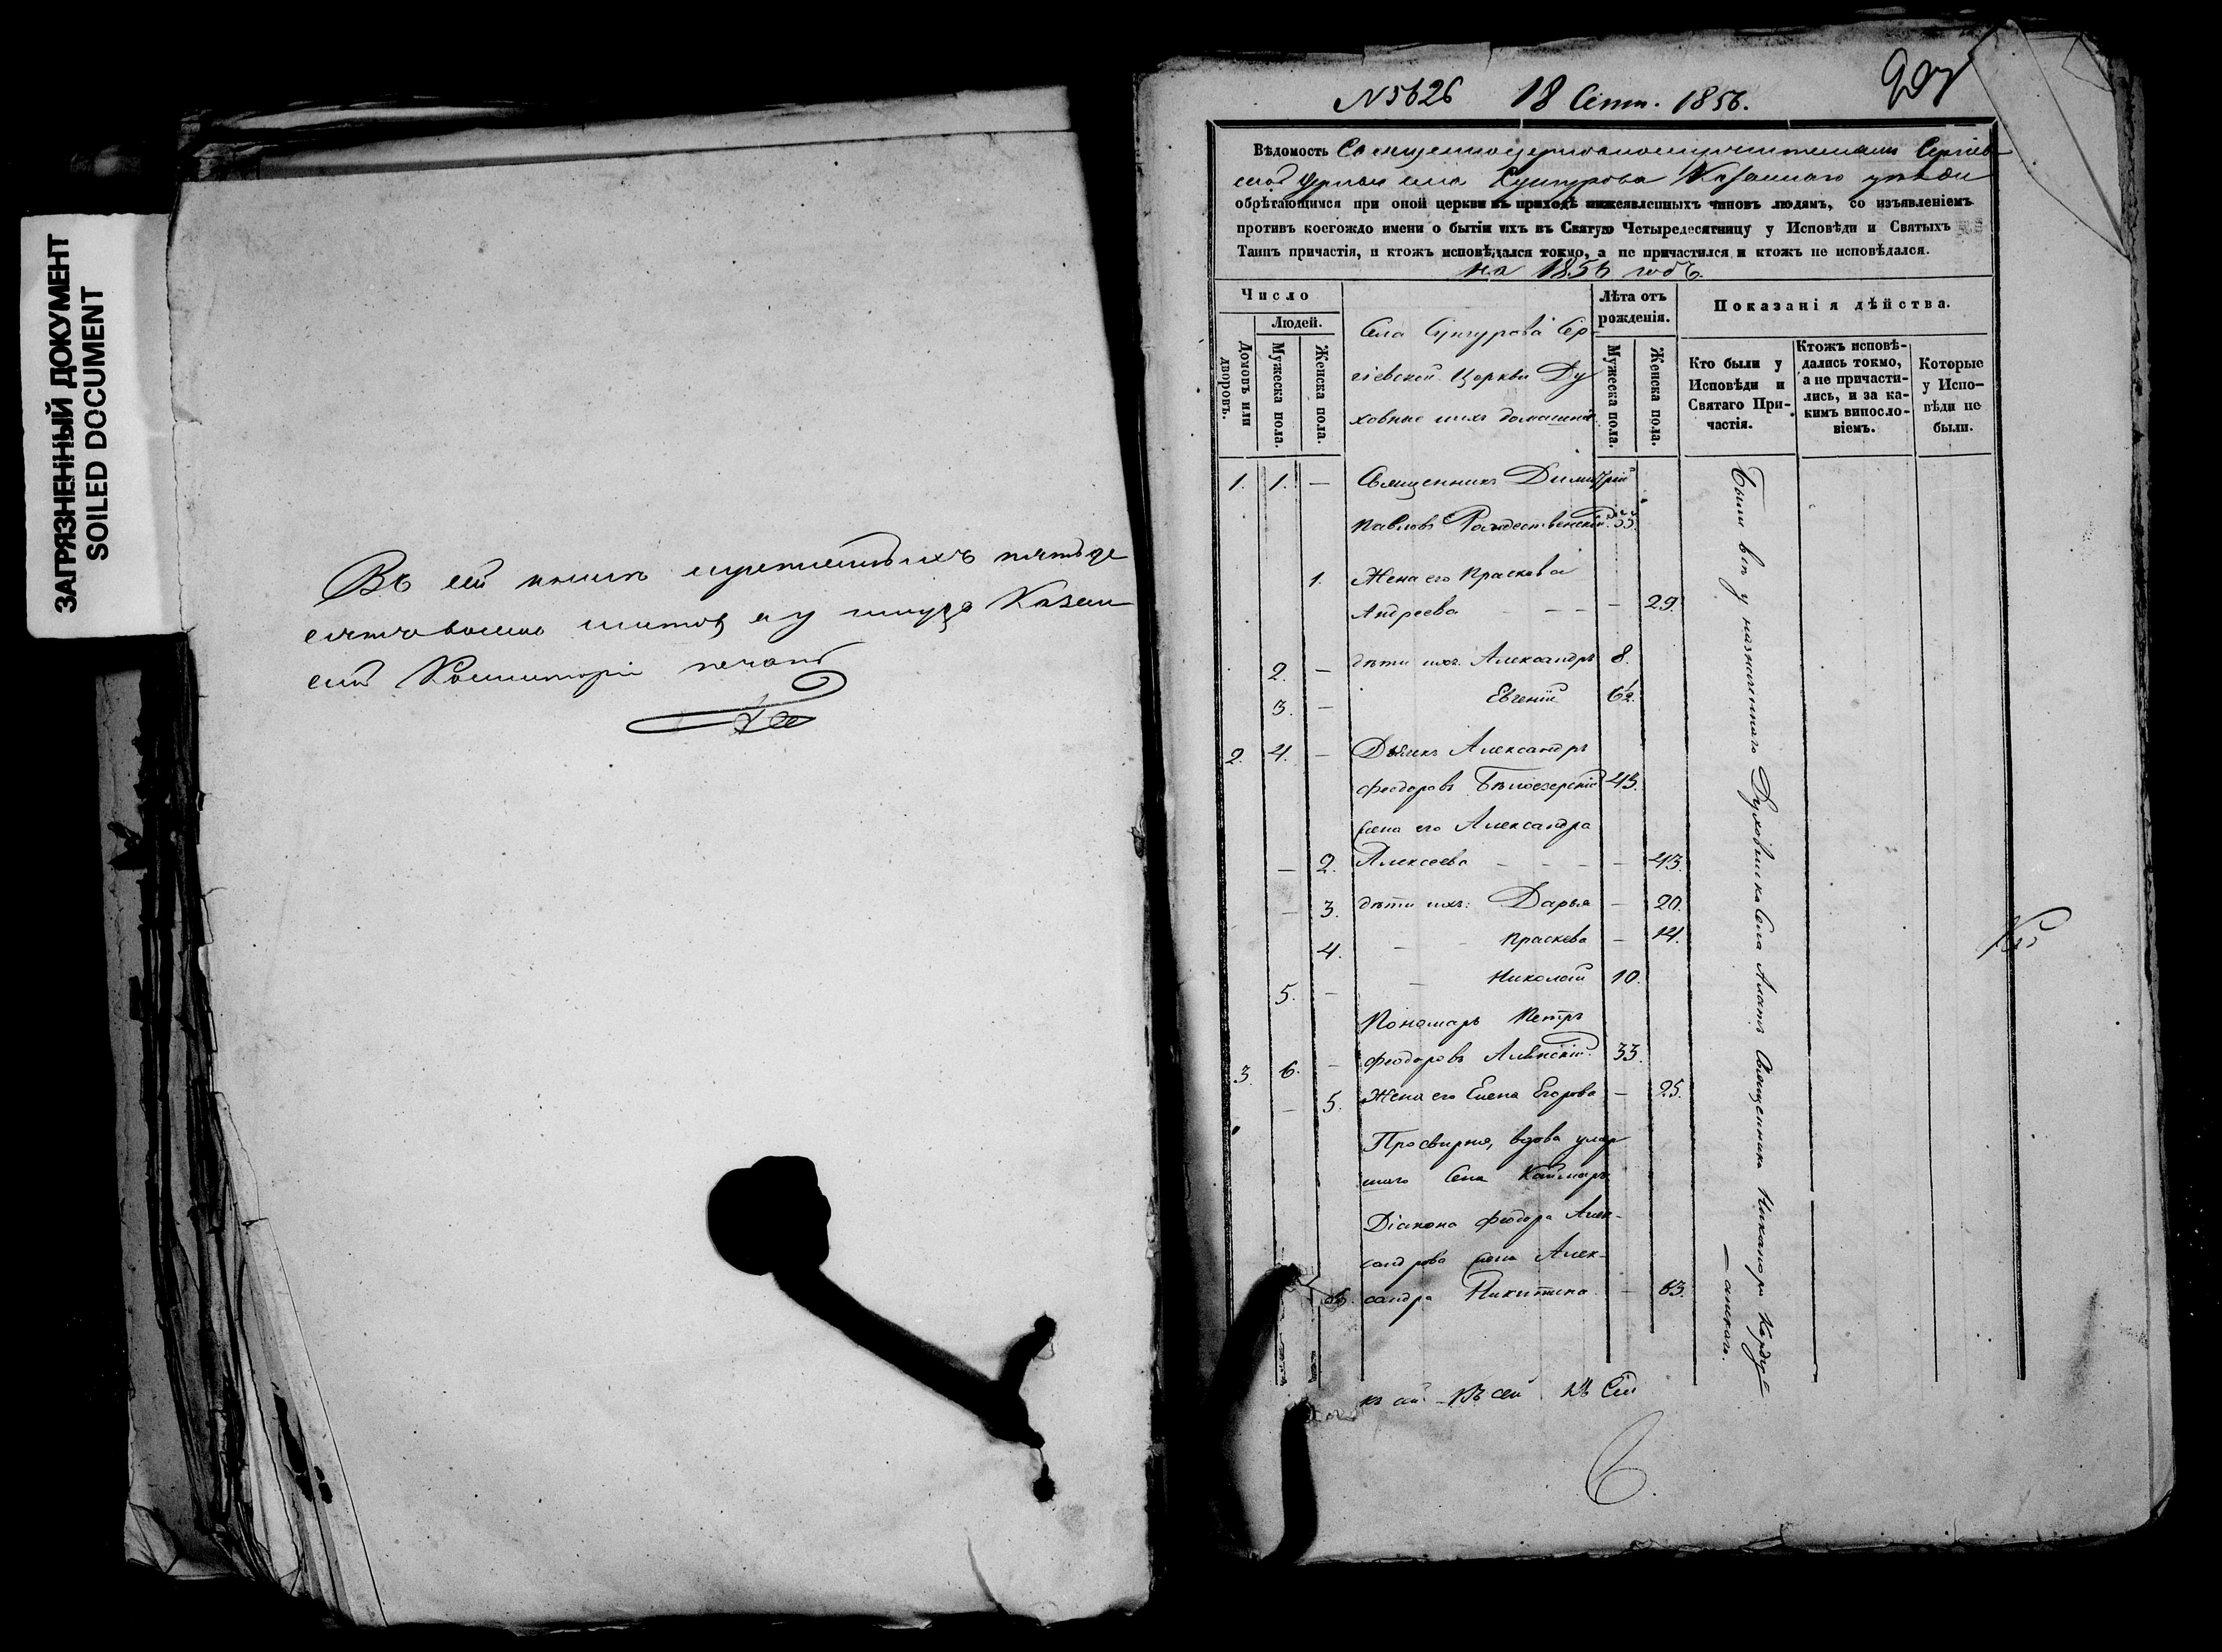 ЗАГРЯЗНЕННЫЙ ДОКУМЕНТ
SOILED DOCUMENT
Въ сей книгѣ
листов и у шнура Казан
ской Консисторіи печать
N 5626 18 Сент. 1856.
Вѣдомость Сергіев
ской Церкви села Сунгурова Казанскаго уѣзда
обрѣтающимся при оной церкви въ приходѣ нижеявленныхъ чиновъ людямъ, со изъявленіемъ
противъ коегождо имени о бытіи ихъ въ Святую Четыредесятницу у Исповѣди и Святыхъ
Таинъ причастія, и ктожъ исповѣдался токмо, а не причастился и ктожъ не исповѣдался.
на 1856 годъ.
Число
Людей.
Домовъ или дворовъ.
Мужеска пола.
Женска пола.
Села Сунгурова Сер-
гіевской Церкви Ду
ховные и ихъ домашніе
Лѣта отъ рожденія.
Мужеска пола.
Женска пола.
Показанія дѣйства.
Кто были у
Исповѣди и
Святаго При-
частія.
Ктожъ исповѣ-
дались токмо,
а не причасти-
лись, и за ка-
кимъ винословіемъ.
Которые
у Испо-
вѣди не
были.
1. 1. — Священникъ Димитрій
Павловъ Рождественскій. 33.
1. Жена его Прасковья
Андреева - - - — 29.
2. — дѣти ихъ Александръ 8.
3. — Евгеній
2. 4. — Дьячекъ Александръ
Феодоровъ Бѣлоезерскій 45.
жена его Александра
— 2. Алексеева - - - — 43.
— 3. дѣти ихъ: Дарья — 20.
4. - - Праскева — 14.
5. — - Николай 10.
Пономарь Петръ
3. 6. — Феодоровъ 33.
— 5. Жена его Елена Егорова — 25.
Просвирня, вдова умер
шаго Села Каймаръ
Діакона Феодора Алек-
сандрова жена Алек-
6. сандра Никитина — 63.
Были всѣ у назначеннаго Духовника Села Алатъ Священника Никанора
въ сей